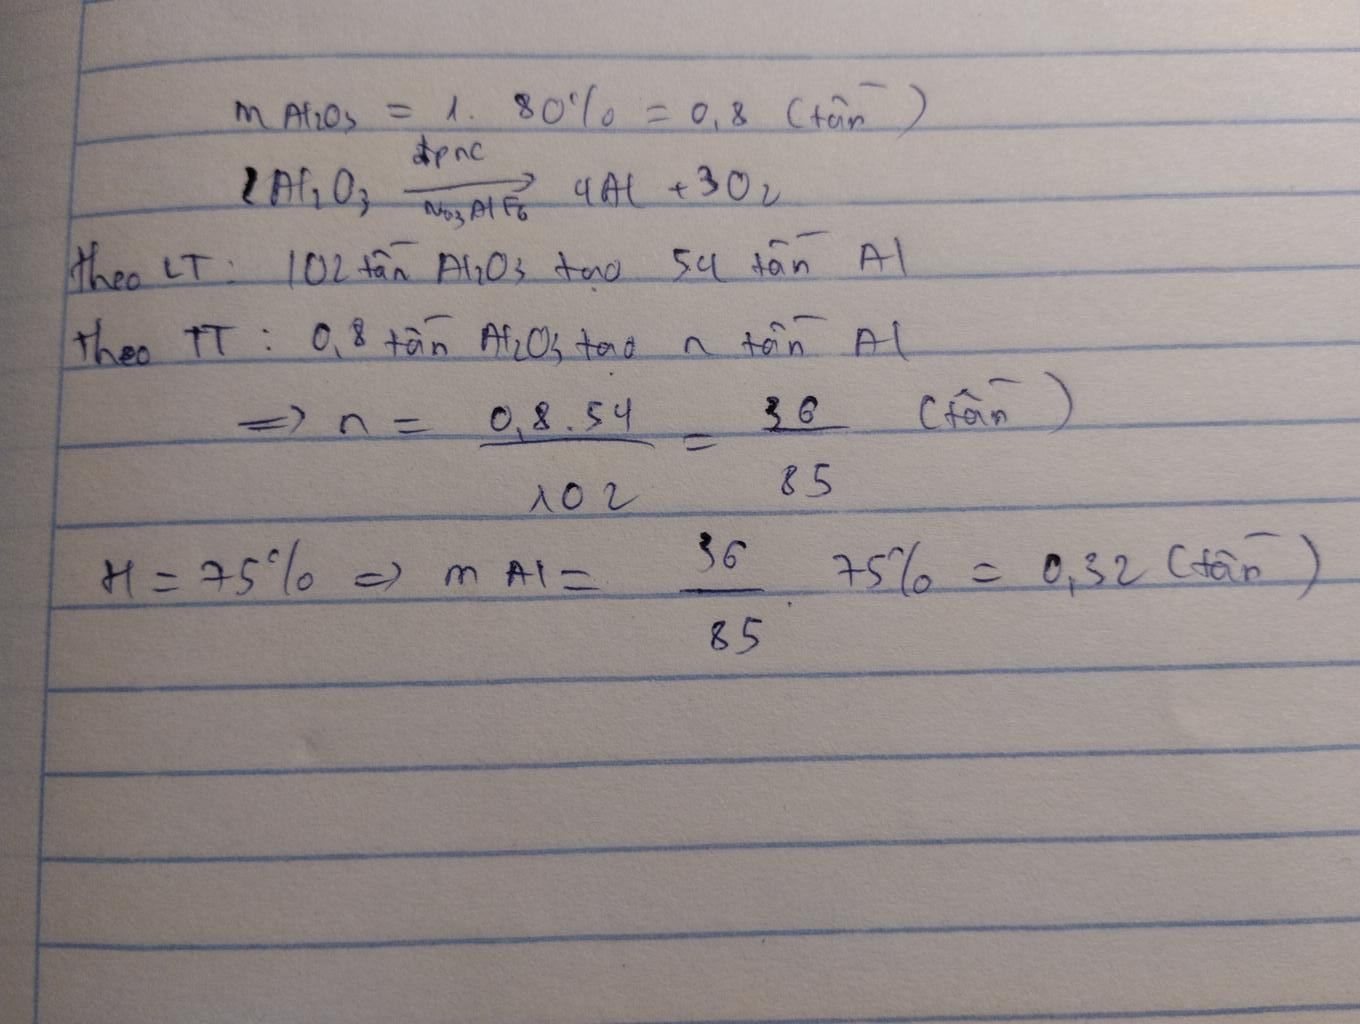 m Al2O3 = 1. 80% = 0,8 (tấn)
2Al2O3 đpnc→ Na3AlF6 4Al + 3O2
theo LT: 102 tấn Al2O3 tạo 54 tấn Al
theo TT: 0,8 tấn Al2O3 tạo n tấn Al
=> n = 0,8.54/102 = 36/85 (tấn)
H = 75% => m Al = 36/85 . 75% = 0,32 (tấn)